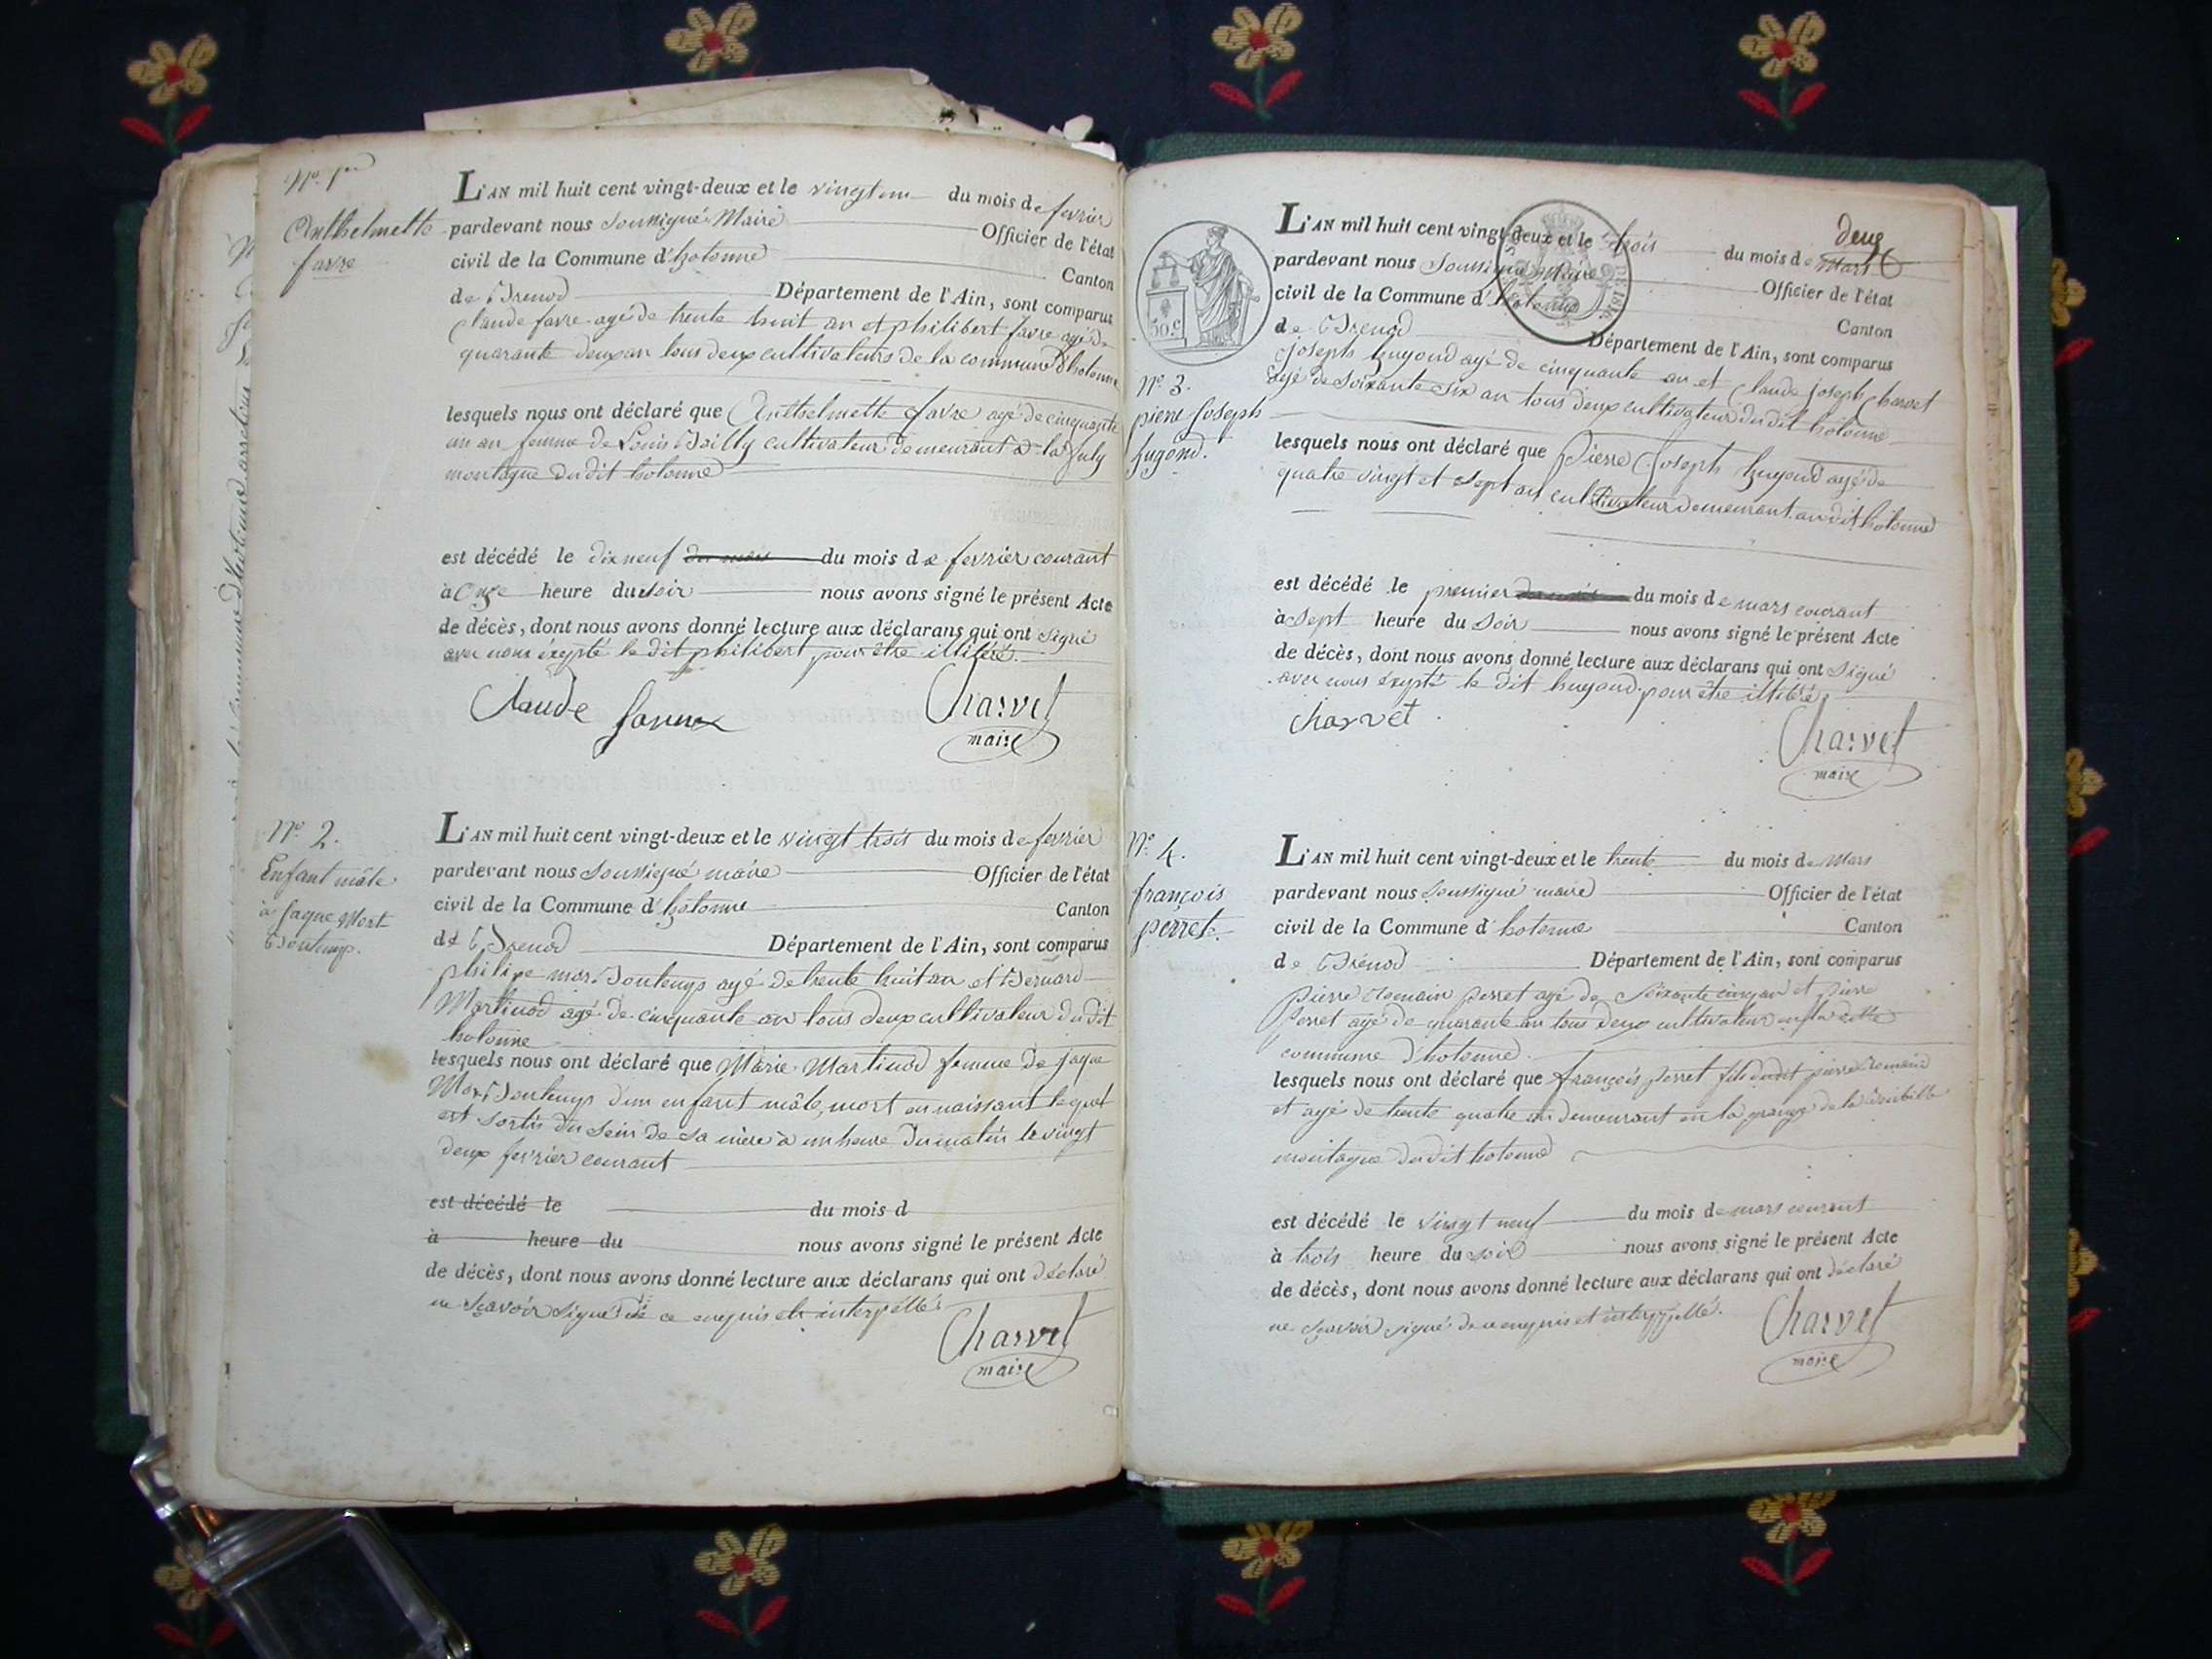 N.º 1.er
Anthelmette
favre
L'AN mil huit cent vingt-deux et le vingt un du mois de fevrier
pardevant nous soussigné Maire Officier de l'état
civil de la Commune d'hotonne Canton
de Brenod Département de l'Ain, sont comparus
Claude favre agé de trente huit an et philibert favre agé de
quarante deux an tous deux cultivateurs de la commune d'hotonne
lesquels nous ont déclaré que Anthelmette favre agé de cinquante
un an femme de Louis Bailly cultivateur demeurant a la
montagne du dit hotonne
est décédé le dix neuf du mois du mois de fevrier courant
à Onze heure du soir nous avons signé le présent Acte
de décès, dont nous avons donné lecture aux déclarans qui ont signé
avec nous éxcpté le dit philibert pour être illitéré.
Claude favre
Charvet
maire
N.º 2.
Enfant mâle
à Jaque Mort
Bontemp.
L'AN mil huit cent vingt-deux et le vingt trois du mois de fevrier
pardevant nous soussigné maire Officier de l'état
civil de la Commune d'hotonne Canton
de Brenod Département de l'Ain, sont comparus
philipe mor. Bontemps agé de trente huit an et Bernard
Martinod agé de cinquante an tous deux cultivateur du dit
hotonne
lesquels nous ont déclaré que Marie Martinod femme de jaque
Mor. Bontemps d'un enfant mâle, mort en naissant lequel
est sortis du sein de sa mère à un heure du matin le vingt
deux fevrier courant
est décédé le du mois d
à heure du nous avons signé le présent Acte
de décès, dont nous avons donné lecture aux déclarans qui ont déclaré
ne sçavoir signé de ce enquis et interpéllé.
Charvet
maire
50.c
N.º 3.
pierre Joseph
hugond.
deux
L'AN mil huit cent vingt-deux et le trois du mois de Mars
pardevant nous Soussigné Maire Officier de l'état
civil de la Commune d'hotonne
de Brenod Canton
Département de l'Ain, sont comparus
Joseph hugond agé de cinquante an et Claude joseph Charvet
agé de soixante six an tous deux cultivateur du dit hotonne
lesquels nous ont déclaré que Pierre Joseph hugond agé de
quatre vingt et sept an cultivateur demeurant au dit hotonne
est décédé le premier du mois du mois de mars courant
à sept heure du soir nous avons signé le présent Acte
de décès, dont nous avons donné lecture aux déclarans qui ont signé
avec nous éxcpté le dit hugond pour être illitéré.
Charvet
Charvet
maire
N.º 4.
françois
perret.
L'AN mil huit cent vingt-deux et le trente du mois de Mars
pardevant nous soussigné maire Officier de l'état
civil de la Commune d'hotonne Canton
de Brénod Département de l'Ain, sont comparus
Pierre Romain perret agé de soixante cinq an et pierre
Perret agé de quarante an tous deux cultivateur en la dite
commune d'hotonne.
lesquels nous ont déclaré que françois perret fils du dit pierre Romain
et agé de trente quatre an demeurant en la grange de la
montagne du dit hotonne
est décédé le vingt neuf du mois de mars courant
à trois heure du soir nous avons signé le présent Acte
de décès, dont nous avons donné lecture aux déclarans qui ont déclaré
ne sçavoir signé de ce enquis et interppéllé.
Charvet
maire